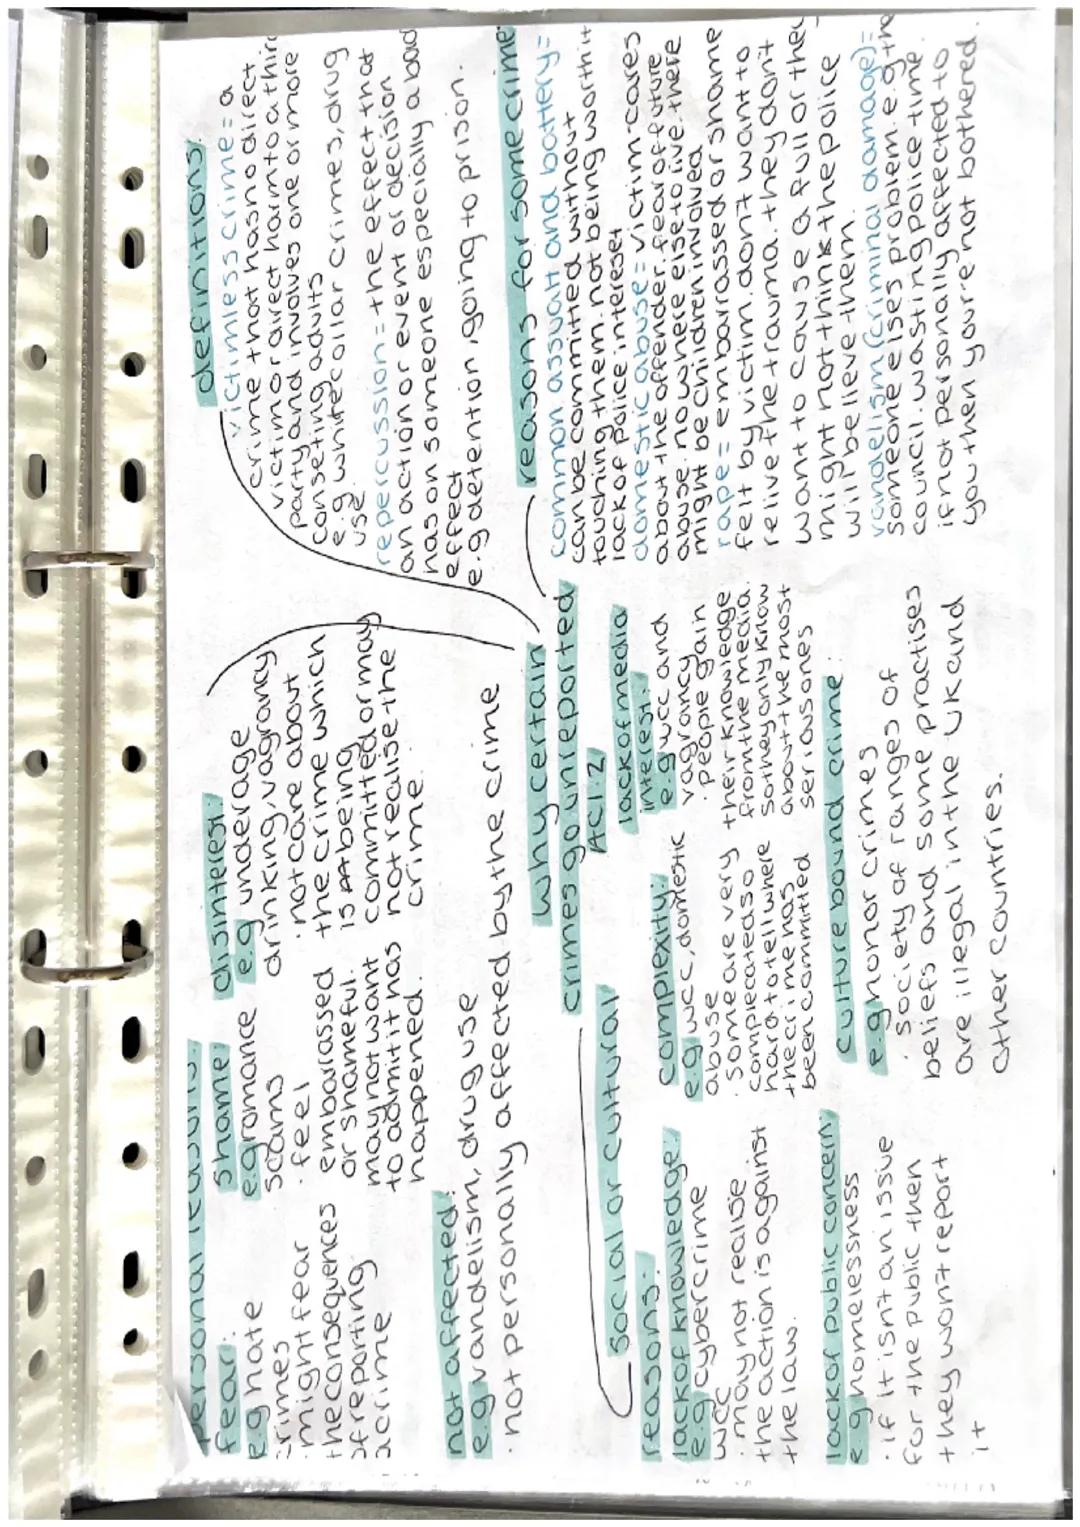 personal reasons:
fear:
e.g hate
crimes
· might fear
the consequences
of reporting
a crime
shame:
e.g romance
scams
· feel
embarassed
or shameful.
may not want
to admit it has
happened.
disinterest:
e.g underage
drinking, vagrancy
· not care about
the crime which
is being
committed or may
not realise the
crime.
not affected:
e.g vandelism, drug use
· not personally affected by the crime
definitions:
victimless crime = a
crime that has no direct
victim or direct harm to a third
party and involves one or more
conseting adults
e.g white collar crimes, drug
use
repercussion = the effect that
an action or event or decision
has on someone especially a bad
effect
e.g detention, going to prison.
why certain
crimes go unreported
AC1.2
social or cultural
reasons:
lack of knowledge:
e.g cybercrime
wcc
· may not realise
the action is against
the law.
complexity:
e.g wcc, domestic
abuse
· some are very
compleated so
hard to tell where
the crime has
been committed
lack of media
interest:
e.g wcc and
vagrancy
· people gain
their knowledge
from the media.
so they only know
about the most
serious ones
lack of public concern:
e.g homelessness
· if it isn't an issue
for the public then
they won't report
it
culture bound crime:
e.g honor crimes
· society of ranges of
beliefs and some practises
are illegal in the UK and
other countries.
reasons for some crime
common assualt and battery =
can be committed without
touching them. not being worth it
lack of police interest
domestic abuse = victim cares
about the offender. fear of future
abuse no where else to live. there
might be children involved
rape = embarrassed or shame
felt by victim. don't want to
relive the trauma. they don't
want to cause a full or they
might not think the police
will believe them.
vandelism (criminal damage) =
someone elses problem. e.g the
council. wasting police time.
if not personally affected to
you then your're not bothered.